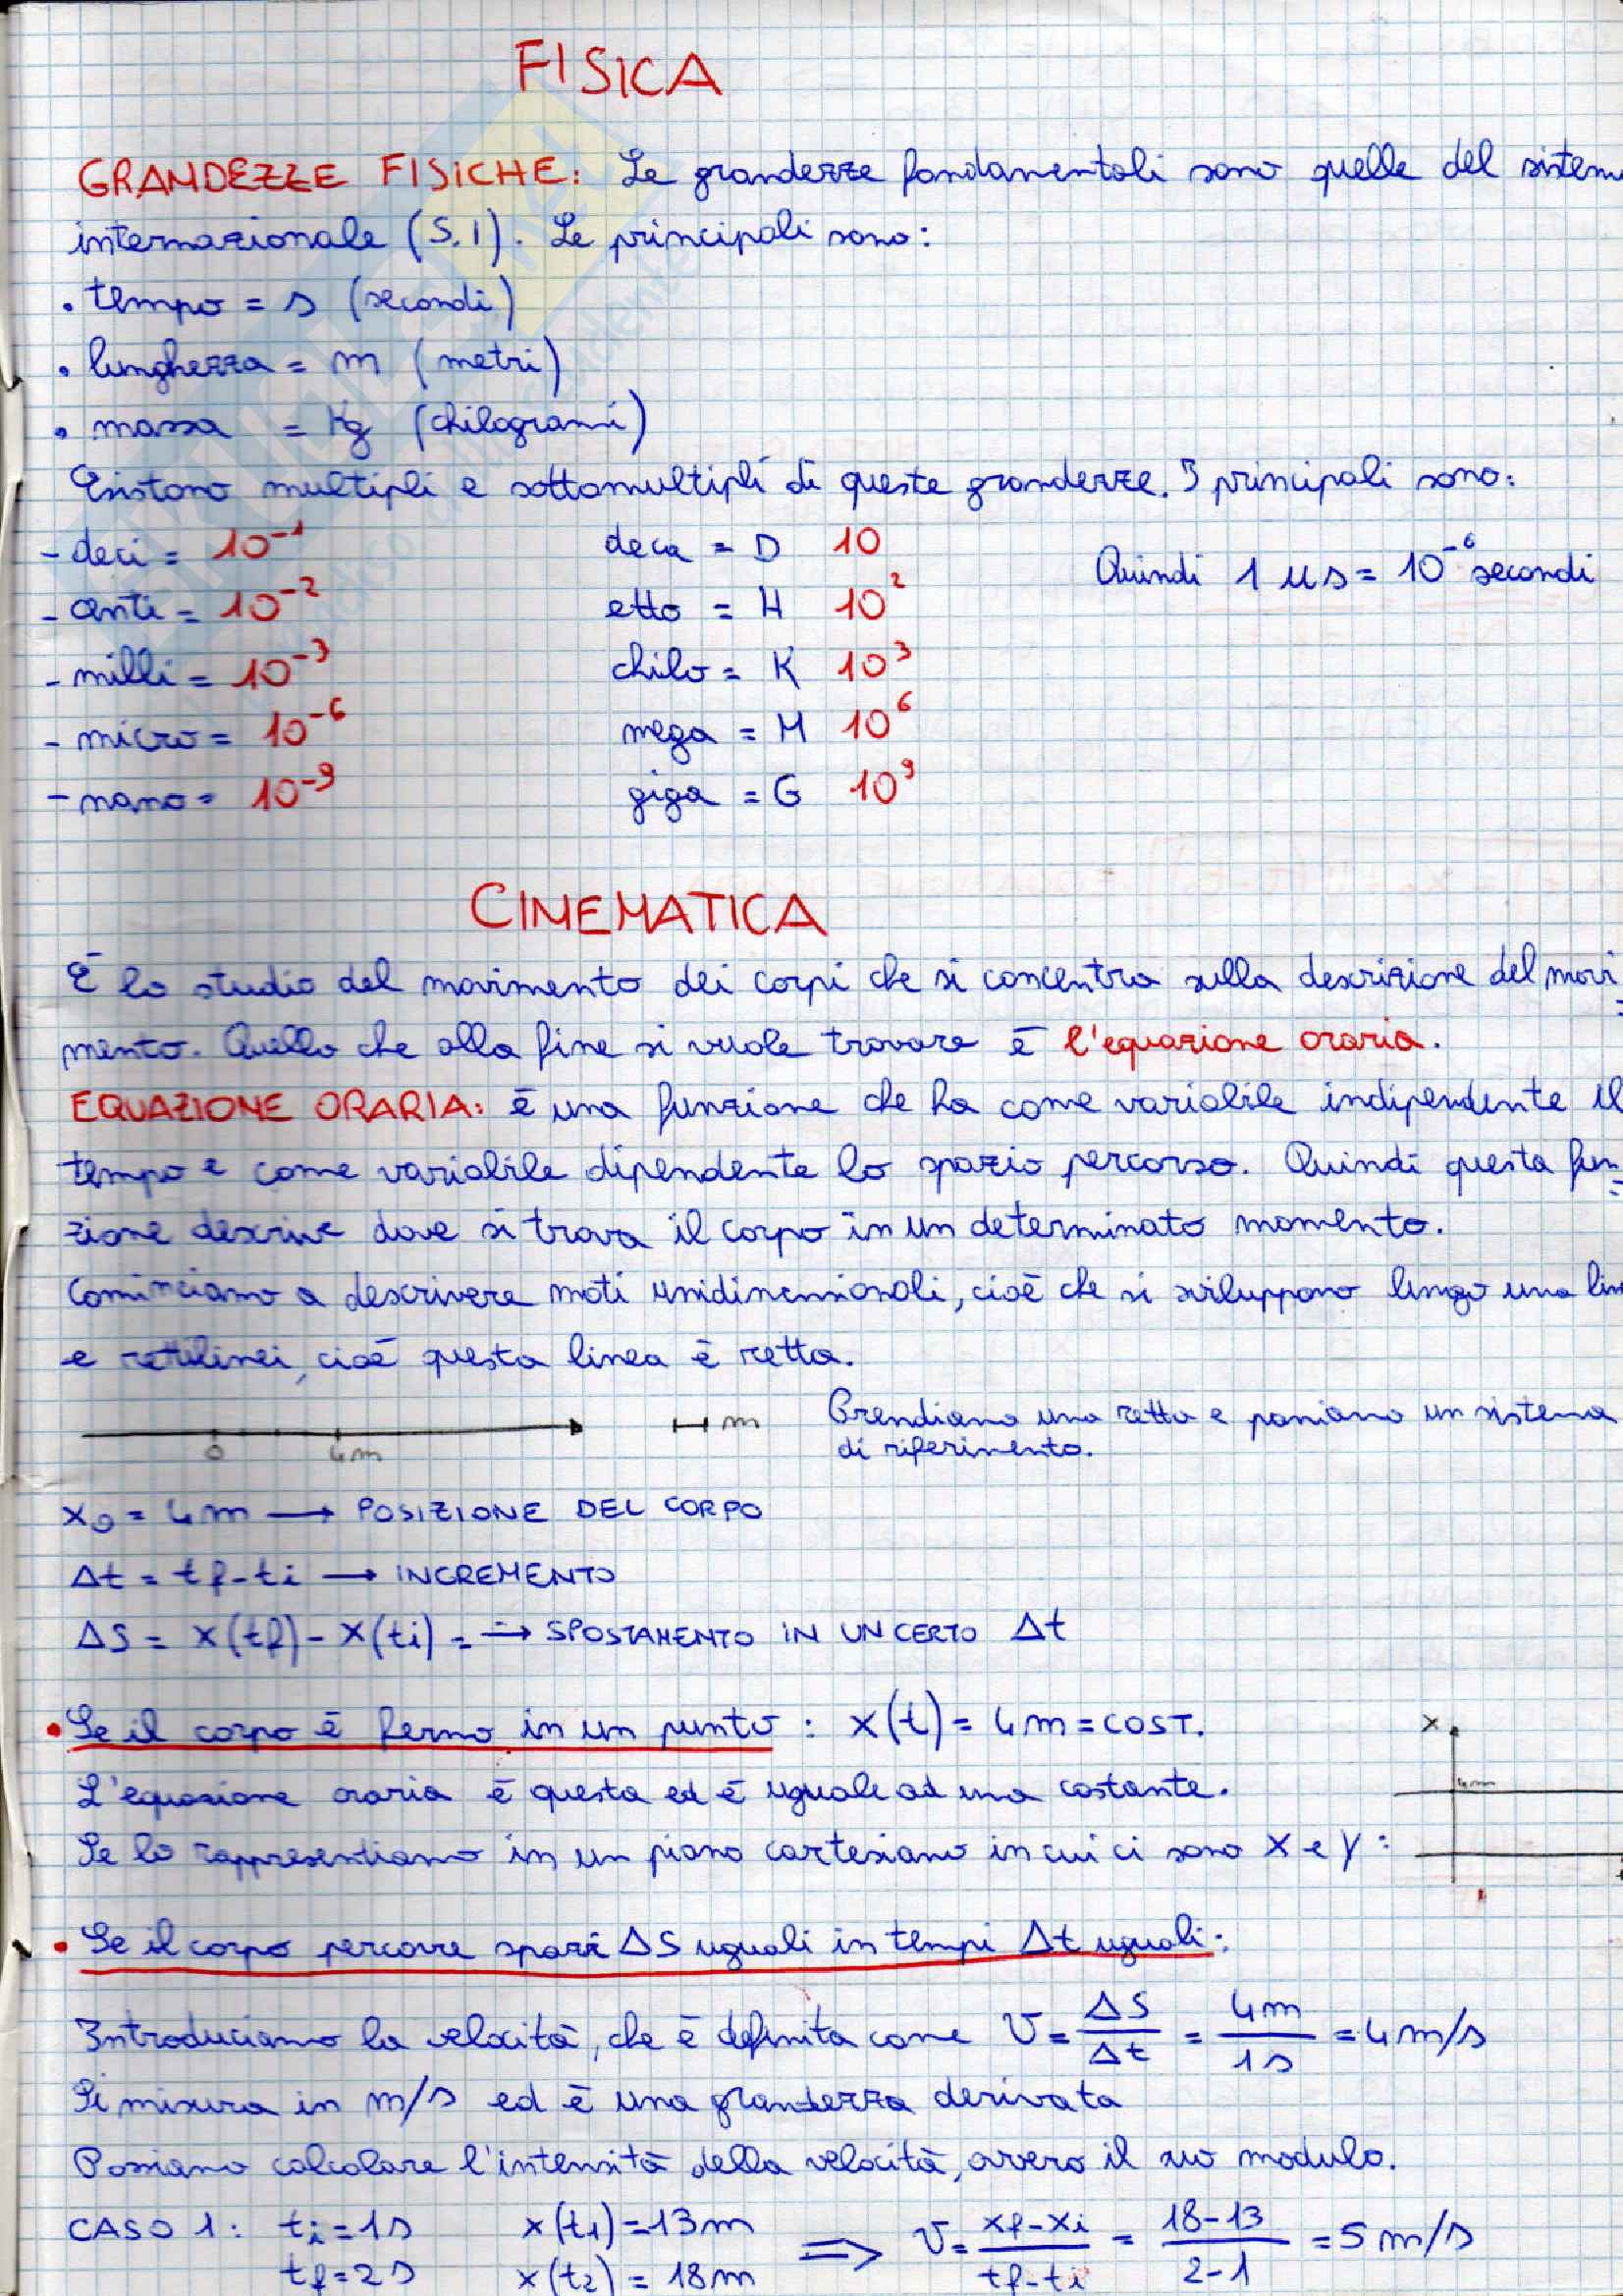 FISICA
GRANDEZZE FISICHE: Le grandezze fondamentali sono quelle del sistem
internazionale (S.I). Le principali sono:
• tempo = s (secondi)
• lunghezza = m (metri)
• massa = Kg (chilogrami)
Esistono multipli e sottomultipli di queste grandezze. I principali sono:
- deci = 10⁻¹ deca = D 10
Quindi 1 μs = 10⁻⁶ secondi
- centi = 10⁻² etto = H 10²
- milli = 10⁻³ chilo = K 10³
- micro = 10⁻⁶ mega = M 10⁶
- nano = 10⁻⁹ giga = G 10⁹
CINEMATICA
È lo studio del movimento dei corpi che si concentra sulla descrizione del movi
mento. Quello che alla fine si vuole trovare è l'equazione oraria.
EQUAZIONE ORARIA: è una funzione che ha come variabile indipendente il
tempo e come variabile dipendente lo spazio percorso. Quindi questa fun
zione descrive dove si trova il corpo in un determinato momento.
Cominciamo a descrivere moti unidimensionali, cioè che si sviluppano lungo una lin
e rettilinei, cioè questa linea è retta.
0 4m
m Prendiamo una retta e poniamo un sistema
di riferimento.
x₀ = 4m → POSIZIONE DEL CORPO
Δt = tf - ti → INCREMENTO
ΔS = x(tf) - x(ti) = → SPOSTAMENTO IN UN CERTO Δt
• Se il corpo è fermo in un punto : x(t) = 4m = COST.
x
4m
L'equazione oraria è questa ed è uguale ad una costante.
Se lo rappresentiamo in un piano cartesiano in cui ci sono x e y :
• Se il corpo percorre spazi ΔS uguali in tempi Δt uguali:
Introduciamo la velocità, che è definita come v = ΔS/Δt = 4m/1s = 4 m/s
Si misura in m/s ed è una grandezza derivata
Possiamo calcolare l'intensità della velocità, ovvero il suo modulo.
CASO 1: ti = 1s x(t₁) = 13m ⇒ v = xf-xi/tf-ti = 18-13/2-1 = 5 m/s
tf = 2s x(t₂) = 18m